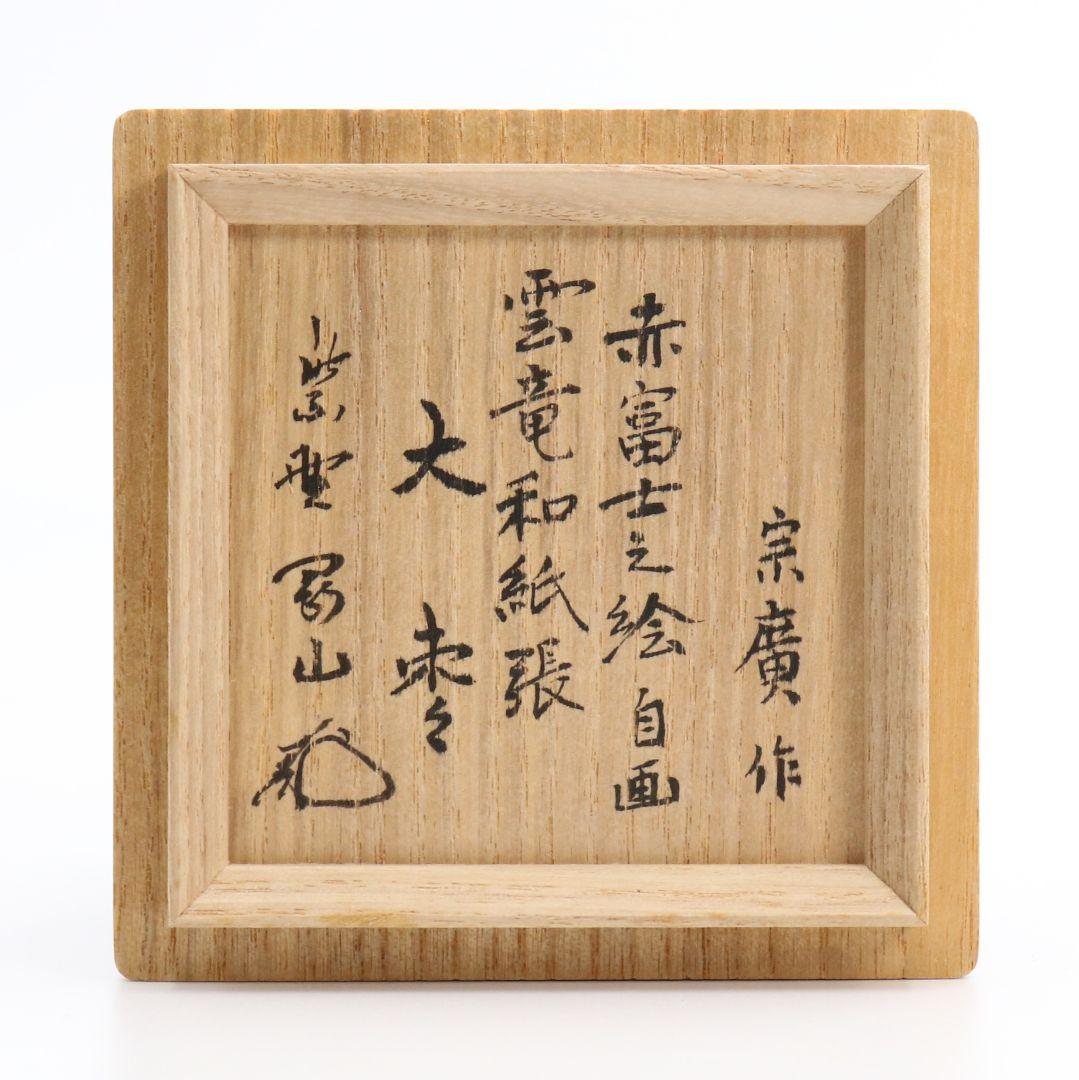 宗廣作
赤富士之絵 自画
雲竜和紙張
大棗
紫野 山